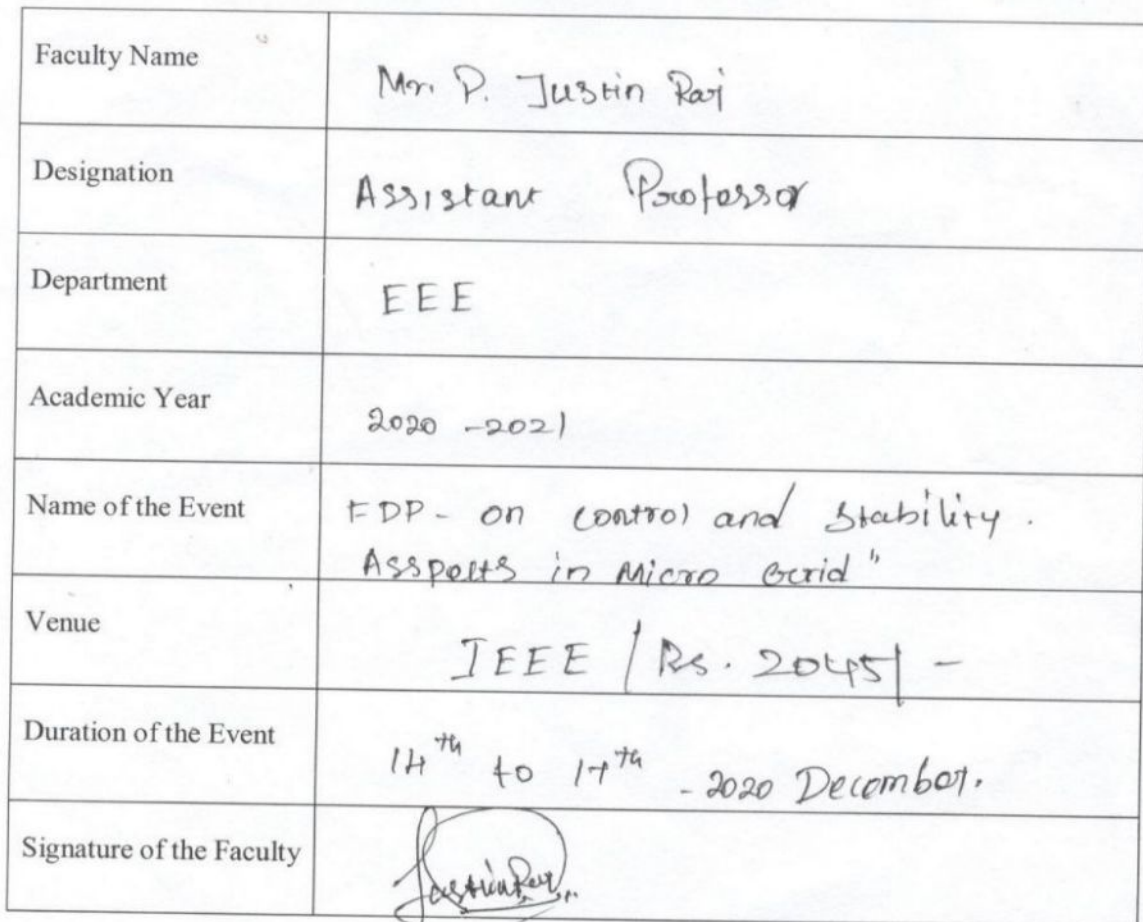 Faculty Name
Mr. P. Justin Raj
Designation
Assistant Professor
Department
EEE
Academic Year
2020 - 2021
Name of the Event
FDP - on control and stability.
Asspects in Micro Grid"
Venue
IEEE / Rs. 2045/-
Duration of the Event
14th to 17th - 2020 December.
Signature of the Faculty
Justin Raj